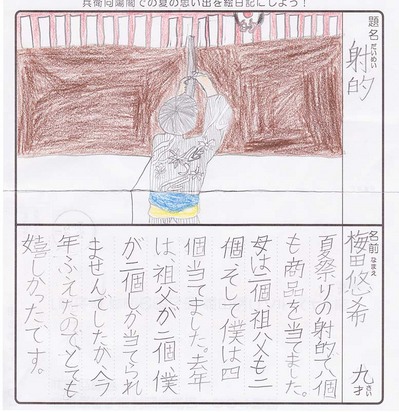 兵衛向陽閣での夏の思い出を絵日記にしよう！
題名
だいめい
射的
名前
なまえ
梅田悠希
九才
さい
夏祭りの射的で八個
も商品を当てました。
母は二個、祖父も二
個、そして僕は四
個当てました。去年
は、祖父が二個、僕
が二個しか当てられ
ませんでしたが、今
年ふえたので、とても
嬉しかったです。